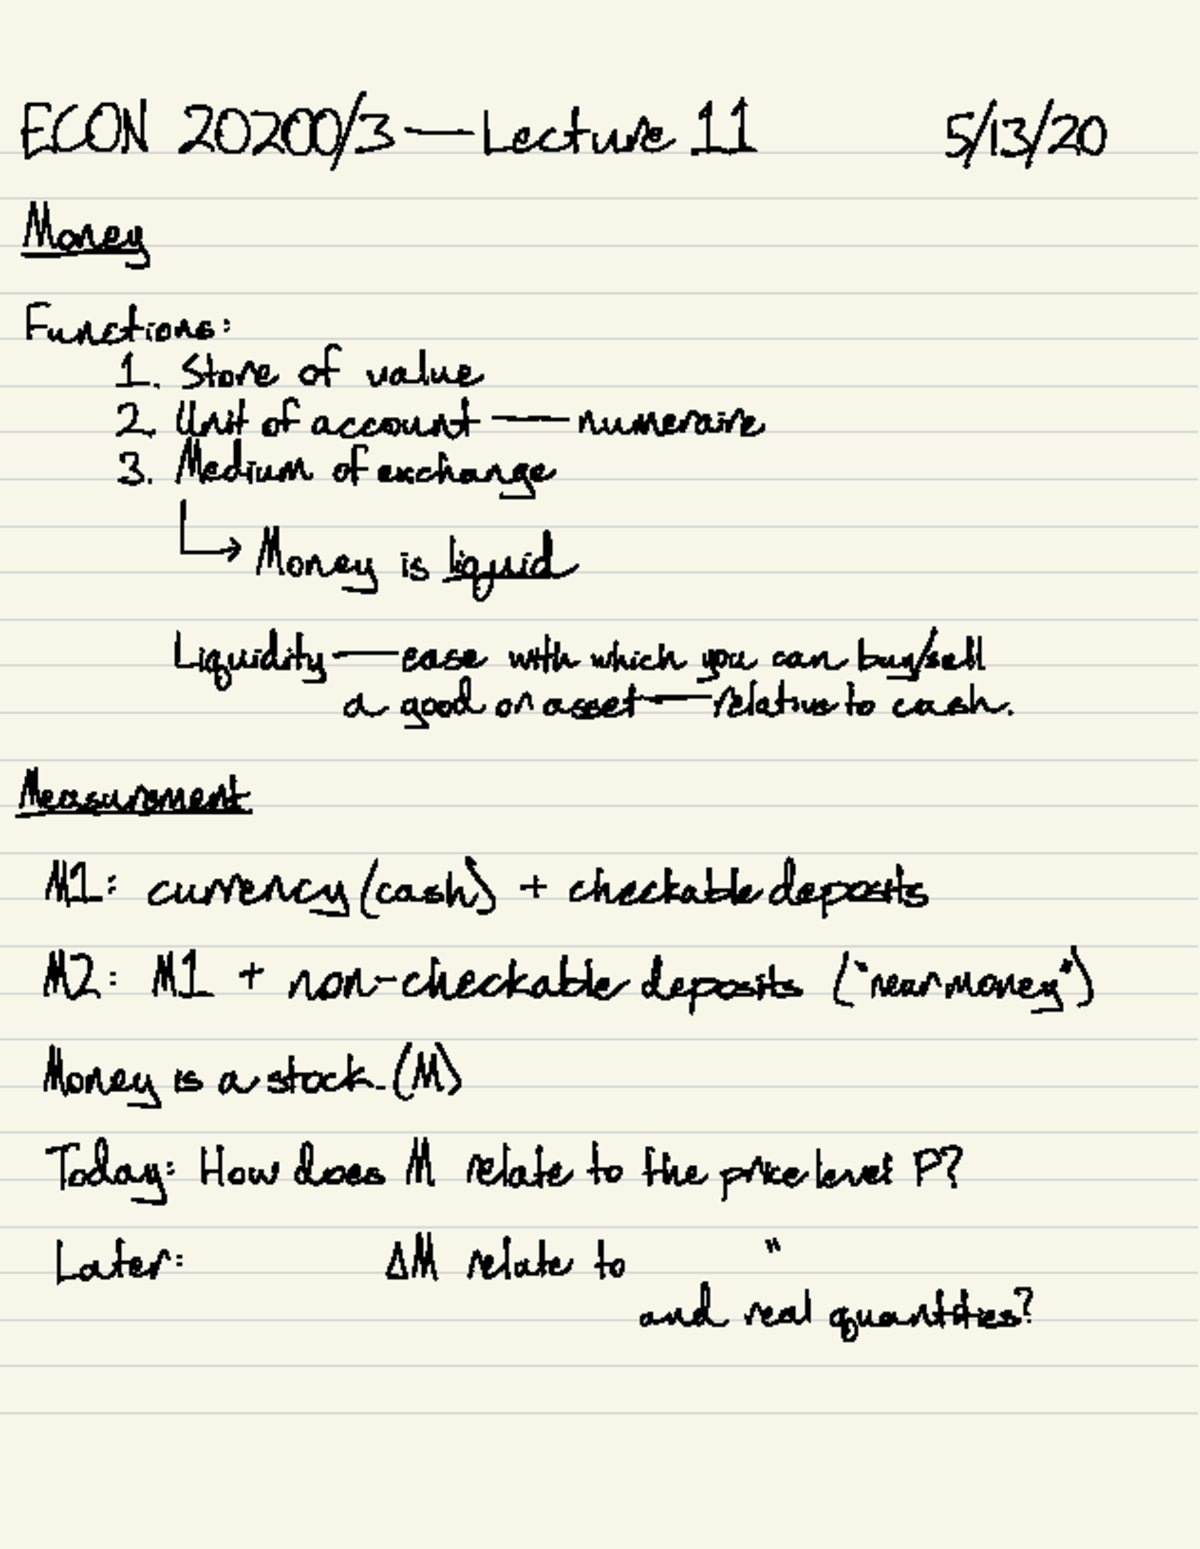 ECON 20200/3 — Lecture 11 5/13/20
Money
Functions:
1. Store of value
2. Unit of account — numeraire
3. Medium of exchange
↳ Money is liquid
Liquidity — ease with which you can buy/sell
a good or asset — relative to cash.
Measurement
M1: currency (cash) + checkable deposits
M2: M1 + non-checkable deposits ("near money")
Money is a stock. (M)
Today: How does M relate to the price level P?
Later: ΔM relate to "
and real quantities?